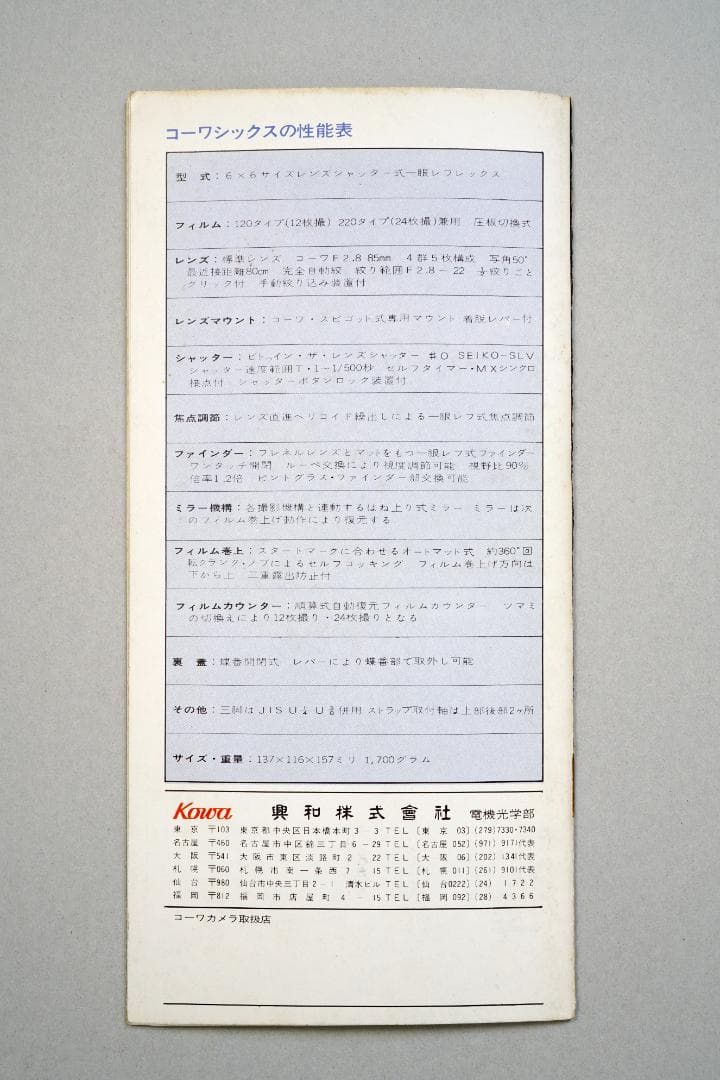 コーワシックスの性能表
型　式：6×6サイズレンズシャッター式一眼レフレックス
フィルム：120タイプ(12枚撮) 220タイプ(24枚撮)兼用　圧板切換式
レンズ：標準レンズ　コーワF2.8 85mm　4群5枚構成　写角50°
最近接距離80cm　完全自動絞　絞り範囲F2.8－22　絞りごと
クリック付　手動絞り込み装置付
レンズマウント：コーワ・スピゴット式専用マウント 着脱レバー付
シャッター：ビトゥイン・ザ・レンズシャッター　#0 SEIKO-SLV
シャッター速度範囲T・1－1/500秒　セルフタイマー・MXシンクロ
接点付　シャッターボタンロック装置付
焦点調節：レンズ直進ヘリコイド繰出しによる一眼レフ式焦点調節
ファインダー：フレネルレンズとマットをもつ一眼レフ式ファインダー
ワンタッチ開閉　ルーペ交換により視度調節可能　視野比90%
倍率1.2倍　ピントグラス・ファインダー部交換可能
ミラー機構：各撮影機構と連動するはね上り式ミラー ミラーは次
のフィルム巻上げ動作により復元する
フィルム巻上：スタートマークに合わせるオートマット式　約360°回
転クランク・ノブによるセルフコッキング　フィルム巻上げ方向は
下から上　二重露出防止付
フィルムカウンター：順算式自動復元フィルムカウンター　ツマミ
の切換えにより12枚撮り・24枚撮りとなる
裏　蓋：蝶番開閉式　レバーにより蝶番部で取外し可能
その他：三脚はJIS U¼ U⅜併用 ストラップ取付軸は上部後部2ヶ所
サイズ・重量：137×116×157ミリ 1,700グラム
Kowa　興和株式會社　電機光学部
東京 〒103 東京都中央区日本橋本町3－3 TEL〔東京 03〕(279)7330・7340
名古屋 〒460 名古屋市中区錦三丁目6－29 TEL〔名古屋 052〕(971)9171代表
大阪 〒541 大阪市東区淡路町2－22 TEL〔大阪 06〕(202)1341代表
札幌 〒060 札幌市南一条西7－15 TEL〔札幌 011〕(261)9101代表
仙台 〒980 仙台市中央三丁目2－1 清水ビル TEL〔仙台 0222〕(24) 1722
福岡 〒812 福岡市店屋町4－15 TEL〔福岡 092〕(28) 4366
コーワカメラ取扱店